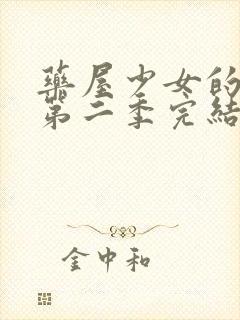 藥屋少女的
第二季完結
金中和